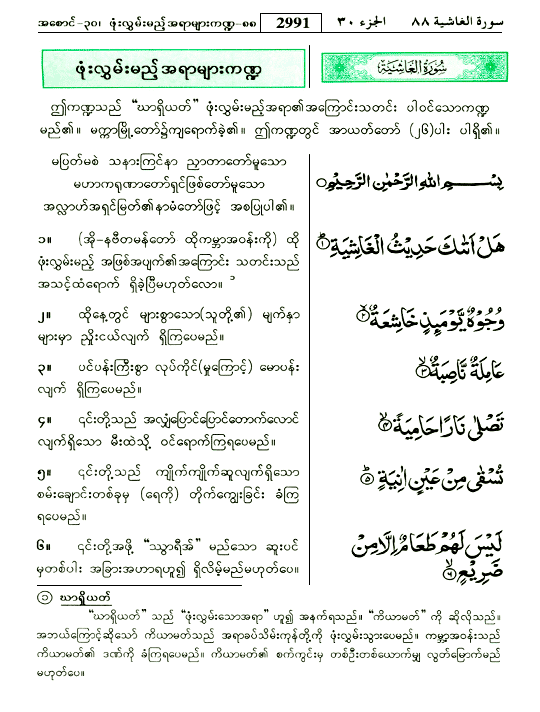 အစောင်-၃၀၊ ဖုံးလွှမ်းမည့်အရာများကဏ္ဍ-၈၈
2991
الجزء ٣٠
سورة الغاشية ٨٨
ဖုံးလွှမ်းမည့်အရာများကဏ္ဍ
سُوْرَةُ الْغَاشِيَةِ
ဤကဏ္ဍသည် “ဃာရှိယတ်” ဖုံးလွှမ်းမည့်အရာ၏အကြောင်းသတင်း ပါဝင်သောကဏ္ဍ
မည်၏။ မက္ကာမြို့တော်၌ကျရောက်ခဲ့၏။ ဤကဏ္ဍတွင် အာယတ်တော် (၂၆)ပါး ပါရှိ၏။
မပြတ်မစဲ သနားကြင်နာ ညှာတာတော်မူသော
မဟာကရုဏာတော်ရှင်ဖြစ်တော်မူသော
အလ္လာဟ်အရှင်မြတ်၏နာမံတော်ဖြင့် အစပြုပါ၏။
بِسْمِ اللهِ الرَّحْمٰنِ الرَّحِيْمِ
၁။ (အို-နဗီတမန်တော် ထိုကမ္ဘာအဝန်းကို) ထို
ဖုံးလွှမ်းမည့် အဖြစ်အပျက်၏အကြောင်း သတင်းသည်
အသင့်ထံရောက် ရှိခဲ့ပြီမဟုတ်လော။
هَلْ اَتٰىكَ حَدِيْثُ الْغَاشِيَةِ ۝١
၂။ ထိုနေ့တွင် များစွာသော(သူတို့၏) မျက်နှာ
များမှာ ညှိုးငယ်လျက် ရှိကြပေမည်။
وُجُوْهٌ يَّوْمَئِذٍ خَاشِعَةٌ ۝٢
၃။ ပင်ပန်းကြီးစွာ လုပ်ကိုင်(မှုကြောင့်) မောပန်း
လျက် ရှိကြပေမည်။
عَامِلَةٌ نَّاصِبَةٌ ۝٣
၄။ ၎င်းတို့သည် အလျှံပြောင်ပြောင်တောက်လောင်
လျက်ရှိသော မီးထဲသို့ ဝင်ရောက်ကြရပေမည်။
تَصْلٰى نَارًا حَامِيَةً ۝٤
၅။ ၎င်းတို့သည် ကျိုက်ကျိုက်ဆူလျက်ရှိသော
စမ်းချောင်းတစ်ခုမှ (ရေကို) တိုက်ကျွေးခြင်း ခံကြ
ရပေမည်။
تُسْقٰى مِنْ عَيْنٍ اٰنِيَةٍ ۝٥
၆။ ၎င်းတို့အဖို့ “သွာရီအ်” မည်သော ဆူးပင်
မှတစ်ပါး အခြားအဟာရဟူ၍ ရှိလိမ့်မည်မဟုတ်ပေ။
لَيْسَ لَهُمْ طَعَامٌ اِلَّا مِنْ
ضَرِيْعٍ ۝٦
၁ ဃာရှိယတ်
“ဃာရှိယတ်” သည် “ဖုံးလွှမ်းသောအရာ” ဟူ၍ အနက်ရသည်။ “ကိယာမတ်” ကို ဆိုလိုသည်။
အဘယ်ကြောင့်ဆိုသော် ကိယာမတ်သည် အရာခပ်သိမ်းကုန်တို့ကို ဖုံးလွှမ်းသွားပေမည်။ ကမ္ဘာ့အဝန်းသည်
ကိယာမတ်၏ ဒဏ်ကို ခံကြရပေမည်။ ကိယာမတ်၏ စက်ကွင်းမှ တစ်ဦးတစ်ယောက်မျှ လွတ်မြောက်မည်
မဟုတ်ပေ။